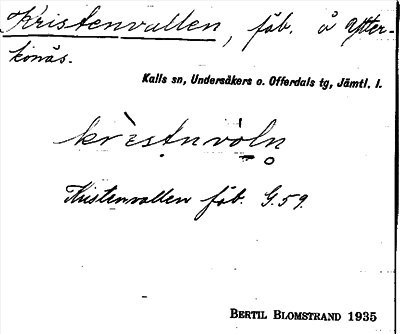 Kristenvallen, fäb. å Ytter-
konäs.
Kalls sn, Undersåkers o. Offerdals tg, Jämtl. l.
kristnvoln
Kristenvallen fäb. G.59.
BERTIL BLOMSTRAND 1935